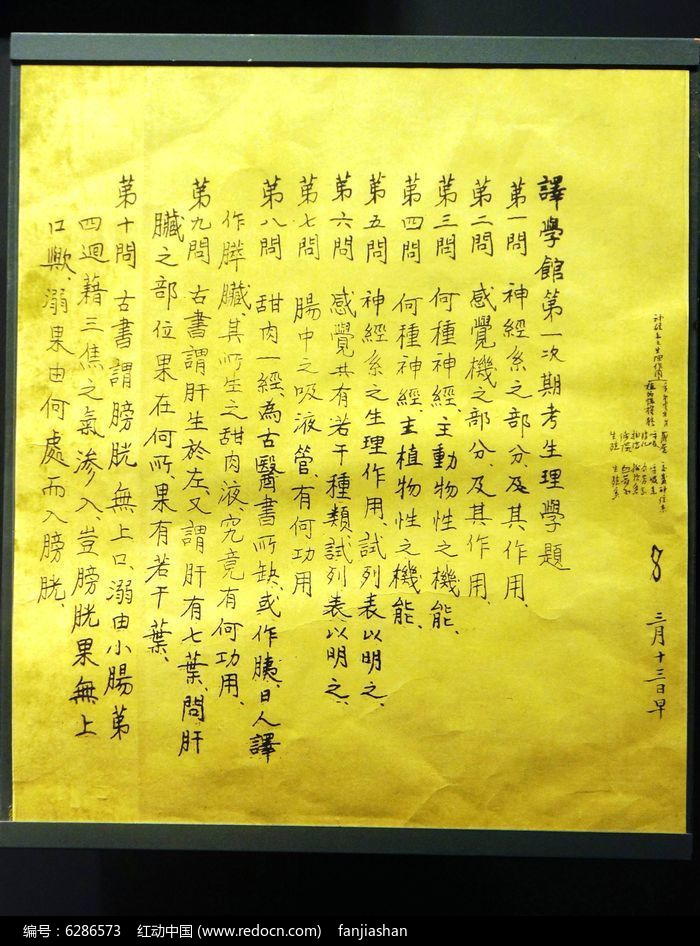 三月十三日早
8
譯學館第一次期考生理學題
第一問 神經系之部分、及其作用、
第二問 感覺機之部分、及其作用、
第三問 何種神經、主動物性之機能、
第四問 何種神經、主植物性之機能、
第五問 神經系之生理作用、試列表以明之、
第六問 感覺共有若干種類試列表以明之、
第七問 腸中之吸液管、有何功用
第八問 甜肉一經、為古醫書所缺、或作胰、日人譯
作膵臟、其所生之甜肉液、究竟有何功用、
第九問 古書謂肝生於左、又謂肝有七葉、問肝
臟之部位果在何所、果有若干葉、
第十問 古書謂膀胱無上口、溺由小腸第
四迴藉三焦之氣滲入、豈膀胱果無上
口歟、溺果由何處而入膀胱、
编号：6286573 红动中国 (www.redocn.com) fanjiashan